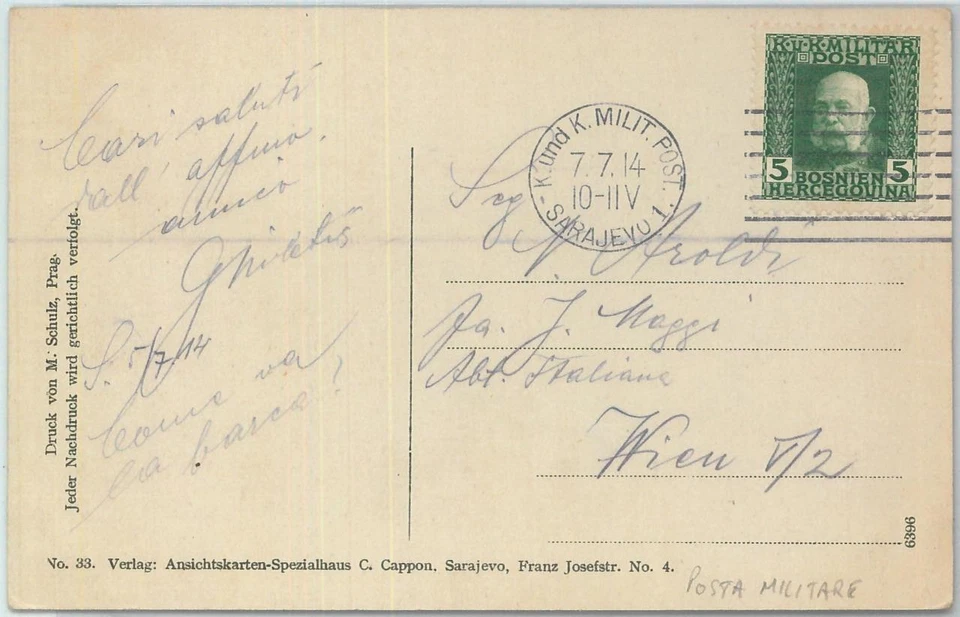 Cari saluti
dall' affmo.
amico
S. 5/7 14
Come va
la barca?
Druck von M. Schulz, Prag.
Jeder Nachdruck wird gerichtlich verfolgt.
K.u.K. MILITÄR
POST
5 5
BOSNIEN
HERCEGOVINA
K. und K. MILIT. POST.
7.7.14
10-11V
SARAJEVO 1.
Sig
Aroldi
Fa. J. Maggi
Abt. Italiana
Wien V/2
6396
No. 33. Verlag: Ansichtskarten-Spezialhaus C. Cappon, Sarajevo, Franz Josefstr. No. 4.
POSTA MILITARE